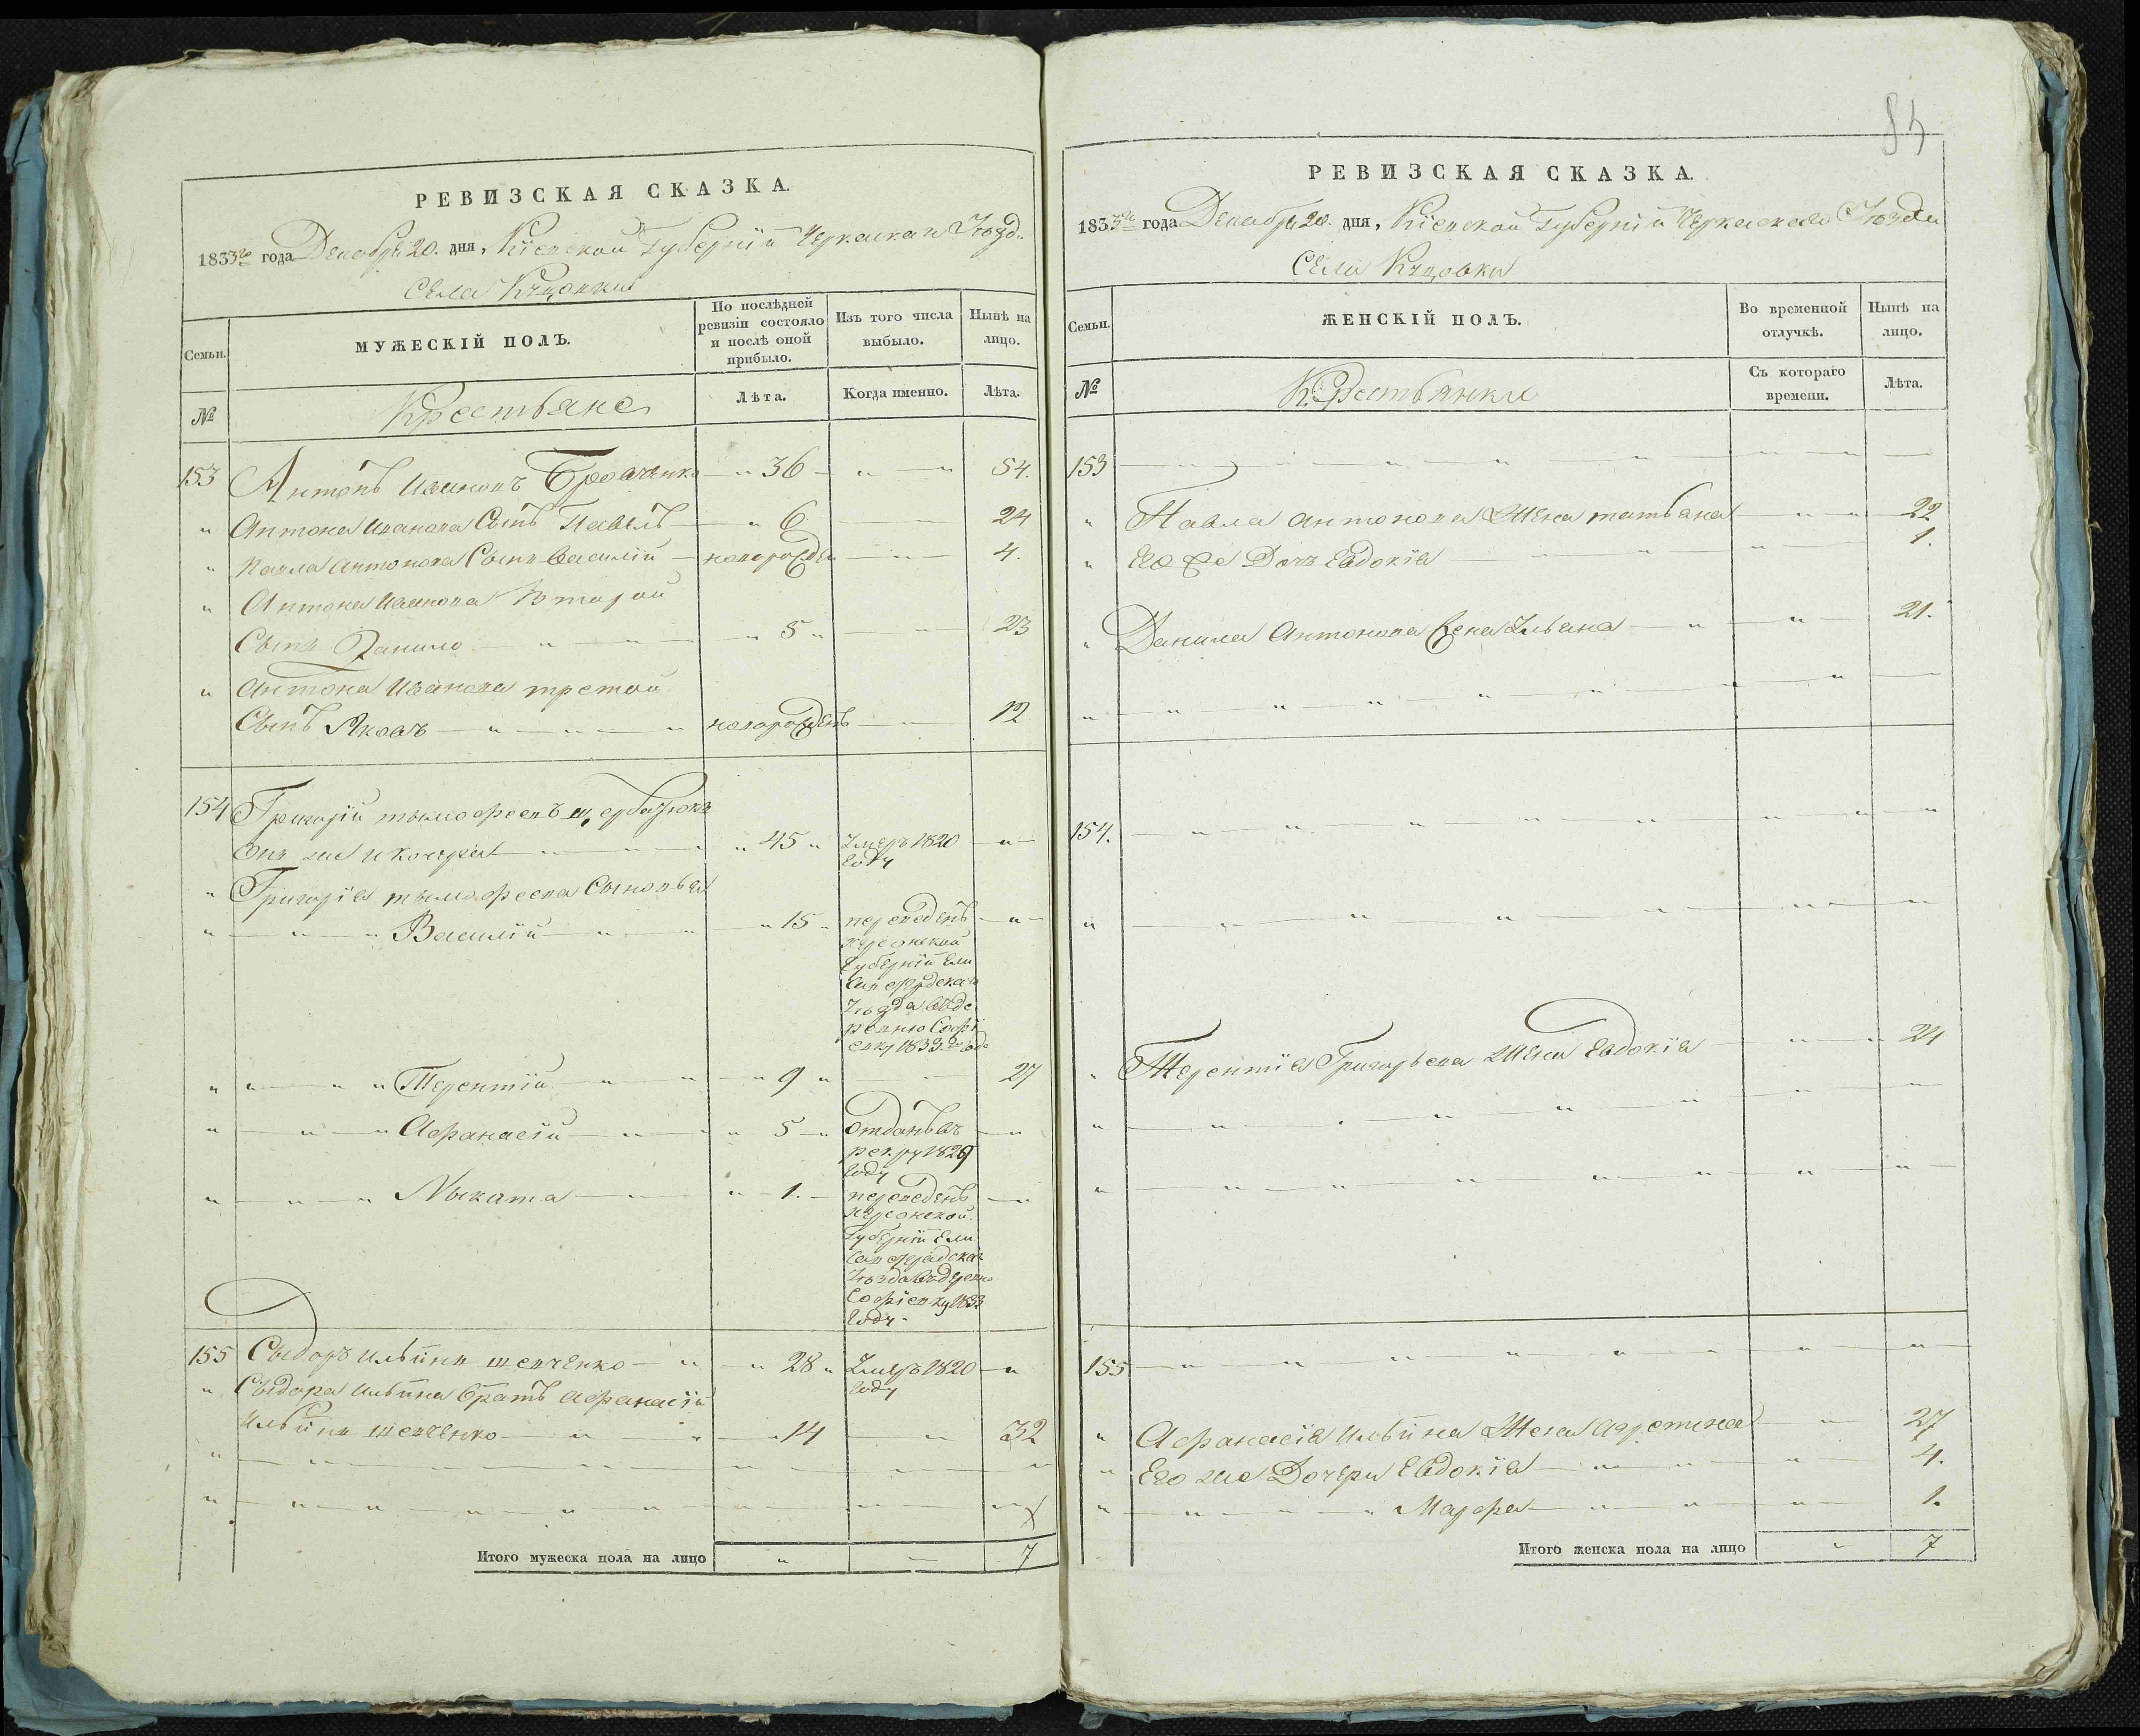 РЕВИЗСКАЯ СКАЗКА.
1833го года Декабря 20. дня, Кіевской Губерніи Черкаскаго Уѣзда
Села
МУЖЕСКІЙ ПОЛЪ.
Семьи.
По послѣдней ревизіи состояло и послѣ оной прибыло.
Изъ того числа выбыло.
Нынѣ на лицо.
№
Крестьяне
Лѣта.
Когда именно.
Лѣта.
153 Антонъ Ивановъ 36 54.
" Антона Иванова Сынъ Павелъ " 6 24
" Павла Антонова Сынъ Василій новорожден 4.
" Антона Иванова Второй
Сынъ Данило " 5 " 23
" Антона Иванова третой
Сынъ Яковъ новорожденъ 12
154 Григорій тымофеевъ
онъ же " 45 " Умеръ 1820
году
" Григорія тымофеева Сыновья
" Василій " 15 " переведенъ
херсонской
Губерніи Ели
саветградскаго
Уѣзда въ де
ревню Софі
евку 1833 году
" Терентій " 9 " 27
" Афанасій " 5 " Отданъ въ
рекру 1829
году
" Мыката " 1. переведенъ
херсонской
Губерніи Ели
саветградскаг
Уѣзда въ деревню
Софіевку 1833
году
155 Сыдоръ Ильинъ шевченко " 28 " Умеръ 1820
году
" Сыдора Ильина братъ Афанасій
Ильинъ шевченко 14 32
Итого мужеска пола на лицо " — 7
84
РЕВИЗСКАЯ СКАЗКА.
1833го года Декабря 20. дня, Кіевской Губерніи Черкаскаго Уѣзда
Села
Семьи.
ЖЕНСКІЙ ПОЛЪ.
Во временной отлучкѣ.
Нынѣ на лицо.
№
Крестьянки
Съ котораго времени.
Лѣта.
153
" Павла Антонова Жена татьана 22
" Его же Дочь Евдокія 1.
" Данила Антонова жена Ульана 21.
154.
" Терентія Григорьева Жена Евдокія 24
155
" Афанасія Ильина Жена 27
" Его же Дочери Евдокія 4.
" Марфа 1.
Итого женска пола на лицо 7